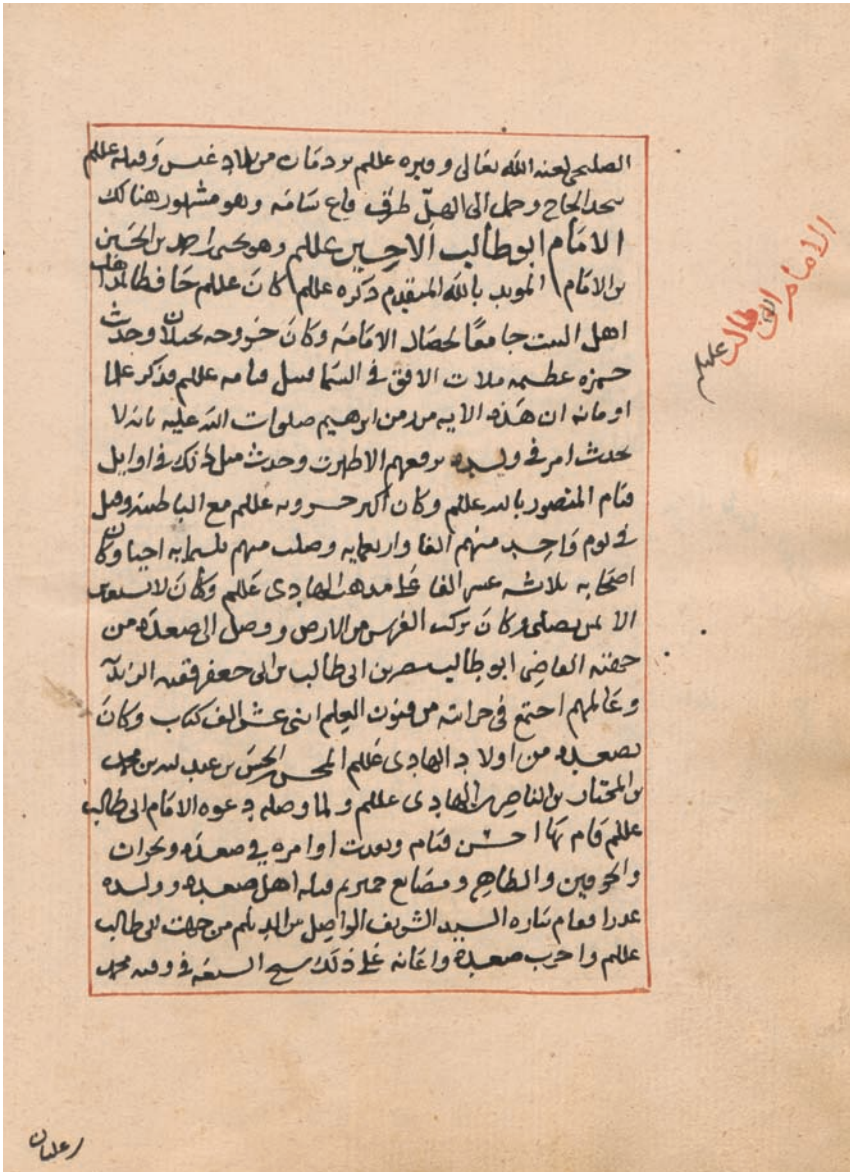 الصليحي لعنه الله تعالى وقبره عللم بردمان من بلاد عنس وقبله عللم
الحاج وحمل الى طرف قاع وهو مشهور هنالك
الامام ابو طالب الاخير عللم وهو يحيى بن احمد بن الحسين
بن الامام المويد بالله المتقدم ذكره عللم كان عللم حافظا لمذاهب
اهل البيت جامعا لخصال الامامة وكان خروجه بجيلان وحدث
حمره عظيمه ملات الافق في السما قبل قيامه عللم فذكر علما
اوانه ان هذه الايه من ابرهيم صلوات الله عليه بانه لا
يحدث امر في ولده يرفعهم الا ظهرت وحدث مثل ذلك في اوايل
قيام المنصور بالله عللم وكان اكبر حروبه عللم مع الباطنيه وقتل
في يوم واحد منهم الفا واربعمايه وصلب منهم احيا وكان
اصحابه ثلاثه عشر الفا على مذهب الهادي عللم وكان لا
الا لمن يصلي وكان يركب الفرس من الارض ووصل الى صعده من
جهته القاضي ابو طالب نصر بن ابي طالب بن ابي جعفر فقيه الزيديه
وعالمهم اجتمع في خزانته من فنون العلم اثني عشر الف كتاب وكان
بصعده من اولاد الهادي عللم المحسن بن الحسن بن عبد لله بن محمد
بن المختار بن الناصر بن الهادي عللم ولما وصله دعوه الامام ابي طالب
عللم قام بها احسن قيام ونفذت اوامره في صعده ونجران
والجوفين والظاهر ومصانع حمير ثم قتله اهل صعده وولده
غدرا فقام بثاره السيد الشريف الواصل من الديلم من جهت ابي طالب
عللم واخرب صعده واعانه على ذلك شيخ الشيعه في وقته محمد
الامام ابي طالب
عللم
بن عليان